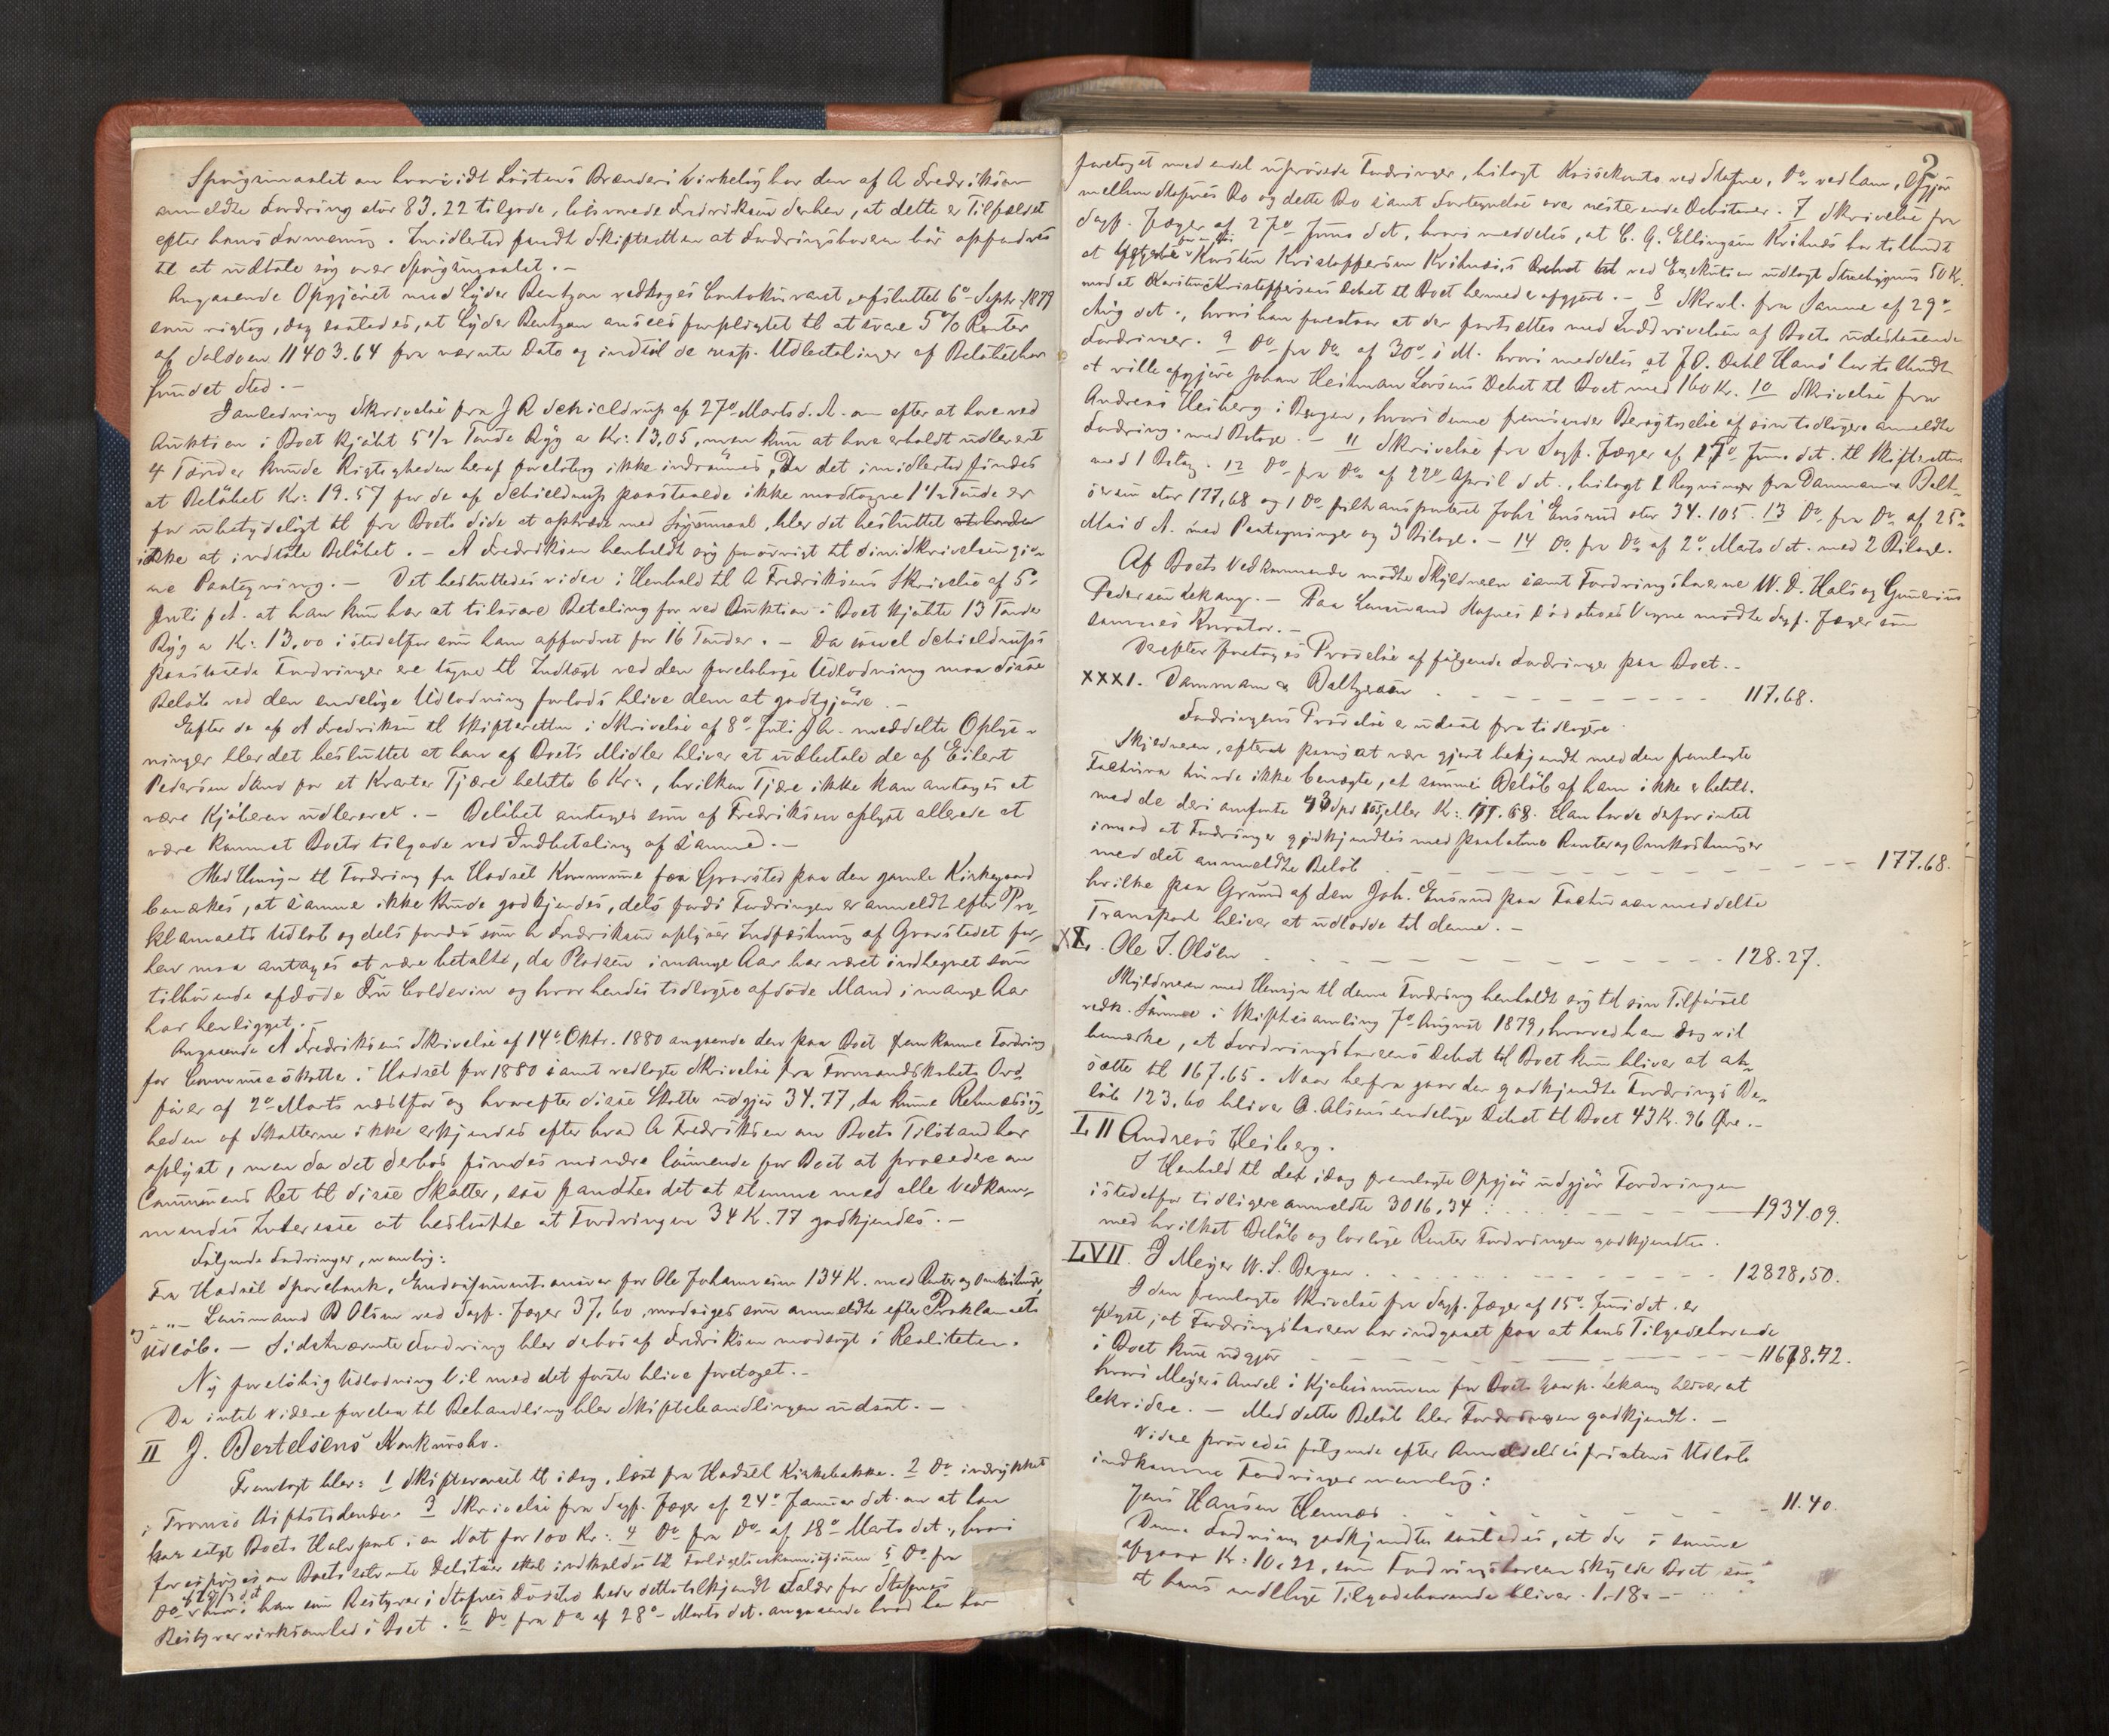 Spörgsmaalet om hvorvidt Löitens Brænderi virkelig har den af A Fredriksen
anmeldte Fordring stor 83.22 tilgode, besvarede Fredriksen derhen, at dette er Tilfældet
efter hans Formening. Imidlertid fandt Skifteretten at Fordringshaveren bör opfordres
til at udtale sig over Spörgsmaalet. -
Angaaende Opgjöret med Lyder Bentzon vedtoges Contokurant afsluttet 6te Septr. 1879
som rigtig, dog saaledes, at Lyder Bentzon ansees forpligtet til at svare 5% Renter
af Saldoen 11403.64 fra nævnte Dato og indtil de resp. Udbetalinger af Belöbet har
fundet Sted. -
I anledning Skrivelse fra J R Schieldrup af 27de Marts d. A. om efter at have ved
Auktion i Boet kjöbt 5 1/2 Tønde Rüg a Kr: 13,05, men kun at have erholdt udleveret
4 Tønder kunde Rigtigheden heraf foreløbig ikke indrømmes, Da det imidlertid findes
at Belöbet Kr: 19.57 for de af Schieldrup paastaaede ikke modtagne 1 1/2 Tønde er
for ubetydeligt til fra Boets Side at optræde med Sögsmaal, blev det besluttet
ikke at indtale Belöbet. - A Fredriksen henholdt sig forövrigt til sin i Skrivelsen giv-
ne Paategning. - Det besluttedes videre i Henhold til A Fredriksens Skrivelse af 5te
Juli f. A. at han kun har at tilsvare Betaling for ved Auktion i Boet kjøbte 13 Tønder
Rüg a Kr: 13,00 istedetfor som ham affordret for 16 Tønder. - Da saavel Schieldrups
paastaaede Fordringer ere tagne til Indtægt ved den foreløbige Udlodning maa disse
Beløb ved den endelige Udlodning forlods blive dem at godtgjøre. -
Efter de af A Fredriksen til Skifteretten i Skrivelse af 8de Juli f A. meddelte Oplys-
ninger blev det besluttet at han af Boets Midler bliver at udbetale de af Eilert
Pedersen Sand for et Kvarter Tjære betalte 6 Kr:, hvilken Tjære ikke kan antages at
være Kjöberen udleveret. - Belöbet antages som af Fredriksen oplyst allerede at
være kommet Boets tilgode ved Indbetaling af samme. -
Med Hensyn til Fordring fra Hadsel Kommune for Gravsted paa den gamle Kirkegaard
bemærkes, at samme ikke kunde godkjendes, dels fordi Fordringen er anmeldt efter Pro-
klamaets Udløb og dels fordi som A Fredriksen oplyser Indfæstning af Gravstedet for-
hen maa antages at være betalt, da Pladsen i mange Aar har været indhegnet som
tilhørende afdøde Fru Coldevin og hvor hendes tidligere afdøde Mand i mange Aar
har henligget. -
Angaaende A Fredriksens Skrivelse af 14de Oktr. 1880 angaaende den paa Boet fremkomne Fordring
for Communeskatte i Hadsel for 1880 samt vedlagte Skrivelse fra Formandskabets Ord-
fører af 2de Marts næstfor og hvorefter disse Skatter udgjør 34.77, da kunne Retmæssig-
heden af Skatterne ikke erkjendes efter hvad A Fredriksen om Boets Tilstand har
oplyst, men da det derhos findes mindre lönnende for Boet at procedere om
Communens Ret til disse Skatter, saa fandtes det at stemme med alle Vedkom-
mendes Interesse at beslutte at Fordringen 34 K. 77 godkjendes. -
Følgende Fordringer, nemlig:
Fra Hadsel Sparebank, Endossementsansvar for Ole Johannesen 134 K. med Renter og Omkostninger,
og - " - Lensmand B Olsen ved Sagf. Jæger 37.60, modsiges som anmeldte efter Proklamaets
Udløb. - Sidstnævnte Fordring blev derhos af Fredriksen modsagt i Realiteten.
Ny foreløbig Udlodning vil med det første blive foretaget. -
Da intet videre forelaa til Behandling blev Skiftebehandlingen udsat. -
II J. Bertelsens Konkursbo.
Fremlagt blev: 1 Skiftevarsel til idag, læst fra Hadsel Kirkebakke. 2 Do indrykket
i Tromsø Stiftstidende. 3 Skrivelse fra Sagf. Jæger af 24de Januar d.A. om at han
har solgt Boets Halvpart i en Not for 100 Kr: 4 Do fra Do af 18de Marts d.A., hvori
forespørges om Boets Debitorer skal indkaldes til Forligelseskommissionen 5 Do fra
Do hvori han som Bestyrer i Stafnes Dødsbo beder dette tilkjendt Salær for Stafnes
Bestyrervirksomhed i Boet. 6 Do fra Do af 28de Marts d.A. angaaende hvad han har
2
foretaget med endel uprøvede Fordringer, bilagt Kassekonto ved Stafne, Do ved ham, Opgjør
mellem Stafnes Bo og dette Bo samt Fortegnelse over resterende Debitorer. 7 Skrivelse fra
Sagf. Jæger af 27de Juni d.A., hvori meddeles, at C. G. Ellingsen Krihnes har tilbudt
at Karsten Kristoffersen Krihnes's ved Exekution udlagt Struebygning 50 K.
mod at Karsten Kristoffersens Debet til Boet hermed er afgjort. - 8 Skrivl. fra Samme af 29de
Aug d.A., hvori han foreslaar at der fortsættes med Inddrivelsen af Boets udestaaende
Fordringer. 9 Do fra Do af 30te s M. hvori meddeles at J O. Dahl Hans har tilbudt
at ville afgjøre Johan Heitman Larsens Debet til Boet med 160 Kr. 10 Skrivelse fra
Andreas Heiberg i Bergen, hvori denne fremsender Berigtigelse af sin tidligere anmeldte
Fordring med Bilage. - 11 Skrivelse fra Sagf. Jæger af 15de Juni d.A. til Skifteretten
med 1 Bilag. 12 Do fra Do af 22de April d A., bilagt 1 Regninger fra Damman & Balt-
zersen stor 177,68 og 1 Do filtransporteret Johs Ensrud stor 34.105. 13 Do fra Do af 25de
Mai d A. med Paategninger og 3 Bilage. - 14 Do fra Do af 2de Marts d.A. med 2 Bilage.
Af Boets Vedkommende mødte Skyldneren samt Fordringshaverne W. D. Hals og Gunerius
Pedersen Lekang. - Paa Lensmand Stafnes Dødsboes Vegne mødte Sagf. Jæger som
sammes Kurator. -
Derefter foretoges Prøvelse af følgende Fordringer paa Boet. -
XXXI. Damman & Baltzersen - - - 117.68.
Fordringens Prøvelse er udsat fra tidligere.
Skyldneren, efterat være gjort bekjendt med den fremlagte
Factura turde ikke benægte, at samme Beløb af ham ikke er betalt.
med de deri anførte eller K: 177.68. Han havde derfor intet
imod at Fordringen godkjendtes med paaløbne Renter og Omkostninger
med det anmeldte Beløb - - - 177.68.
hvilke paa Grund af den Joh. Ensrud paa Facturaen meddelte
Transport bliver at udlodde til denne. -
XL. Ole J. Olsen - - - 128.27.
Skyldneren med Hensyn til denne Fordring henholdt sig til sin Tilførsel
vedk. Samme i Skiftesamling 7de August 1879, hvorved han dog vil
bemærke, at Fordringshaverens Debet til Boet kun bliver at an-
sætte til 167.65. Naar herfra gaar den godkjendte Fordrings Be-
løb 123.60 bliver O. Olsens endelige Debet til Boet 43 K. 96 Øre. -
LII Andreas Heiberg.
I Henhold til det idag fremlagte Opgjør udgjør Fordringen
istedetfor tidligere anmeldte 3016,34 - - - 1934.09.
med hvilket Beløb og lovlige Renter Fordringen godkjendtes.
LVII. J Meyer W. S. Bergen - - - 12828,50.
I den fremlagte Skrivelse fra Sagf. Jæger af 15de Juni d.A. er
oplyst, at Fordringshaveren har indgaaet paa at hans Tilgodehavende
i Boet kun udgjør - - - 11678.42.
hvori Meyers Andel i Kjøbesummen for Boets Gaarp. Lekang bliver at
likvidere. - Med dette Beløb blev Fordringen godkjendt. -
Videre prøvedes følgende efter Anmeldelsesfristens Udløb
indkomne Fordringer nemlig:
Jens Hansen Hennes - - - 11.40.
Denne Fordring godkjendtes saaledes, at der i samme
afgaar Kr: 10.22, som Fordringshaveren skylder Boet, saa
at hans endelige Tilgodehavende bliver 1.18. -